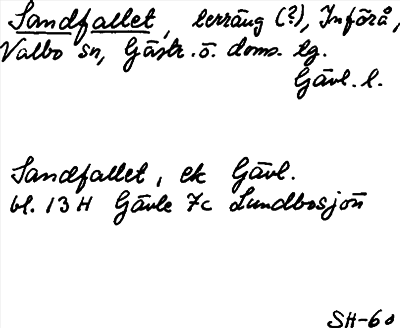 Sandfallet, terräng (?), Införå,
Valbo sn, Gästr. ö. doms. lg.
Gävl. l.
Sandfallet, ek Gävl.
bl. 13 H Gävle 7c Lundbosjön
SH-60